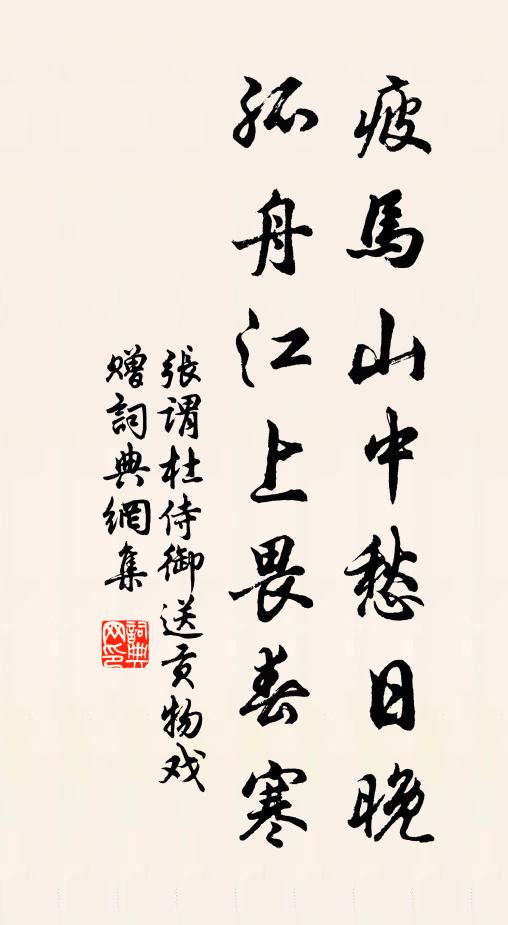 疲馬山中愁日晚
孤舟江上畏春寒
張謂杜侍御送贡物戏
赠詞典網集
詞典网印